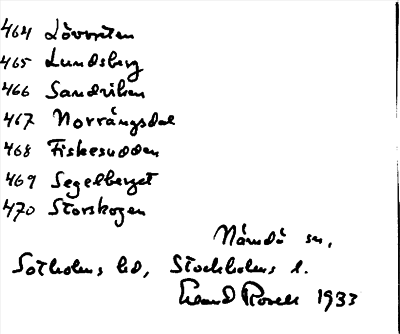 464 Lövviten
465 Lundsberg
466 Sandviken
467 Norrängsdal
468 Fiskesudden
469 Segelberget
470 Storskogen
Nämdö sn,
Sotholms hd, Stockholms l.
1933